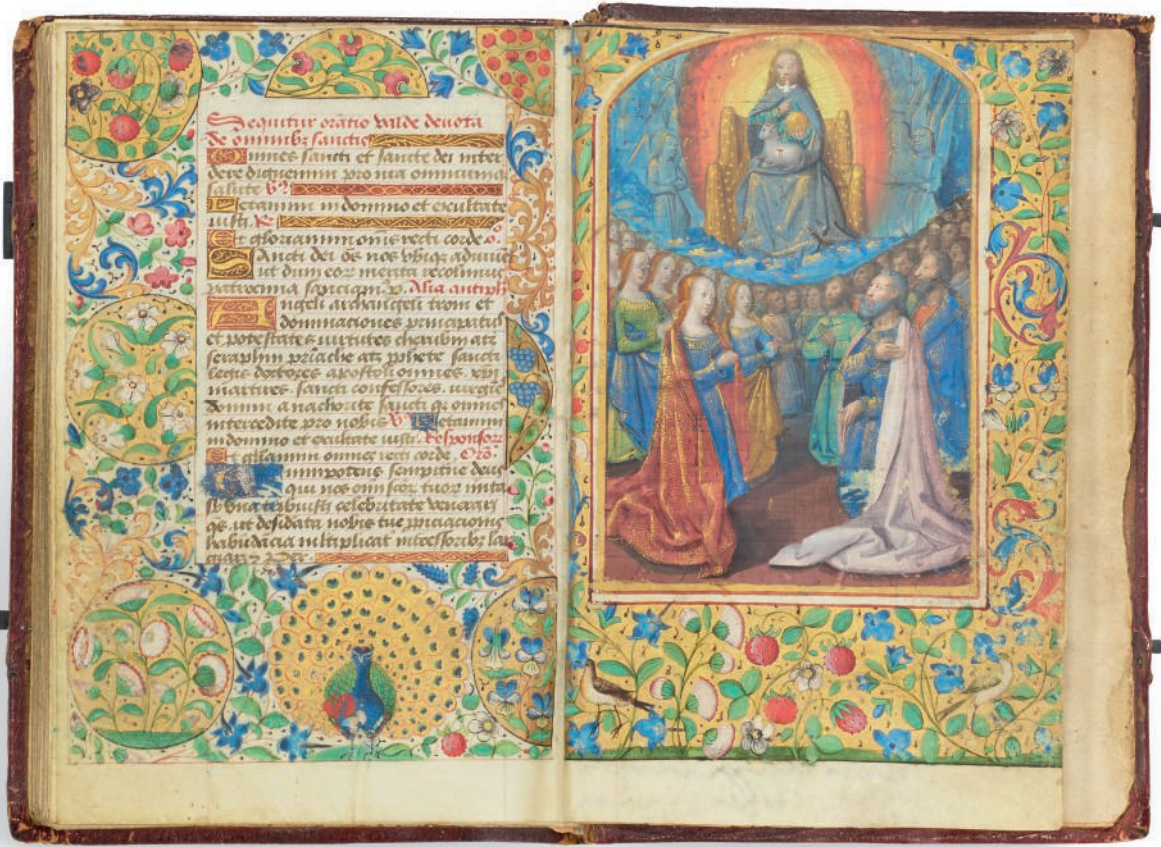 Sequitur oratio valde devota
de omnibz sanctis
Omnes sancti et sancte dei inter
dignemini pro nra omniumqz
salute
Letamini in domino et exultate
iusti R
Et gloriamini oms recti corde
Sancti dei os nos vbiqz
ut dum eorz merita recolimus
patrocinia Alia antiph
Angeli archangeli troni et
dominaciones principatus
et potestates virtutes cherubim atz
seraphin atz pphete sancti
legis doctores apostoli omnes xpi
martires sancti confessores virgines
domini anachorite sanctiqz omnes
intercedite pro nobis V Letamini
in domino et exultate iusti Responsorz
Et gliamini omnes recti corde Oro
omnipotens sempitne deus
qui nos omi scorz tuorz mita
sb vna tribuisti celebritate venerari
qs ut desidata nobis tue
habudacia mltiplicat intcessoribz lar